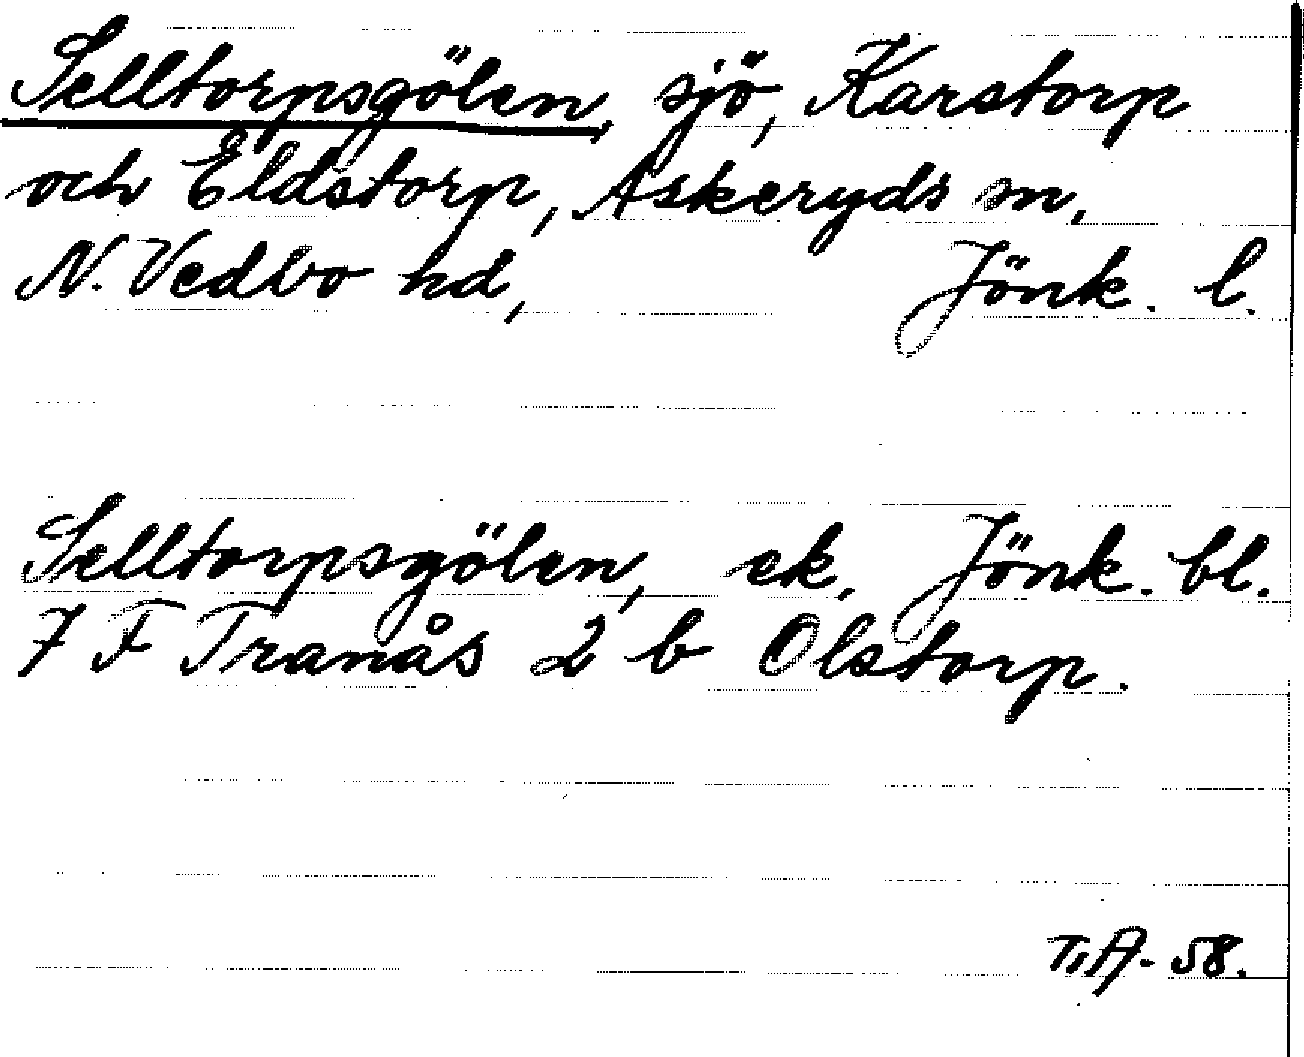 Selltorpsgölen, sjö, Karstorp
och Eldstorp, Askeryds sn,
N. Vedbo hd, Jönk. l.
Selltorpsgölen, ek. Jönk. bl.
7 F Tranås 2 b Olstorp.
T.A- 58.